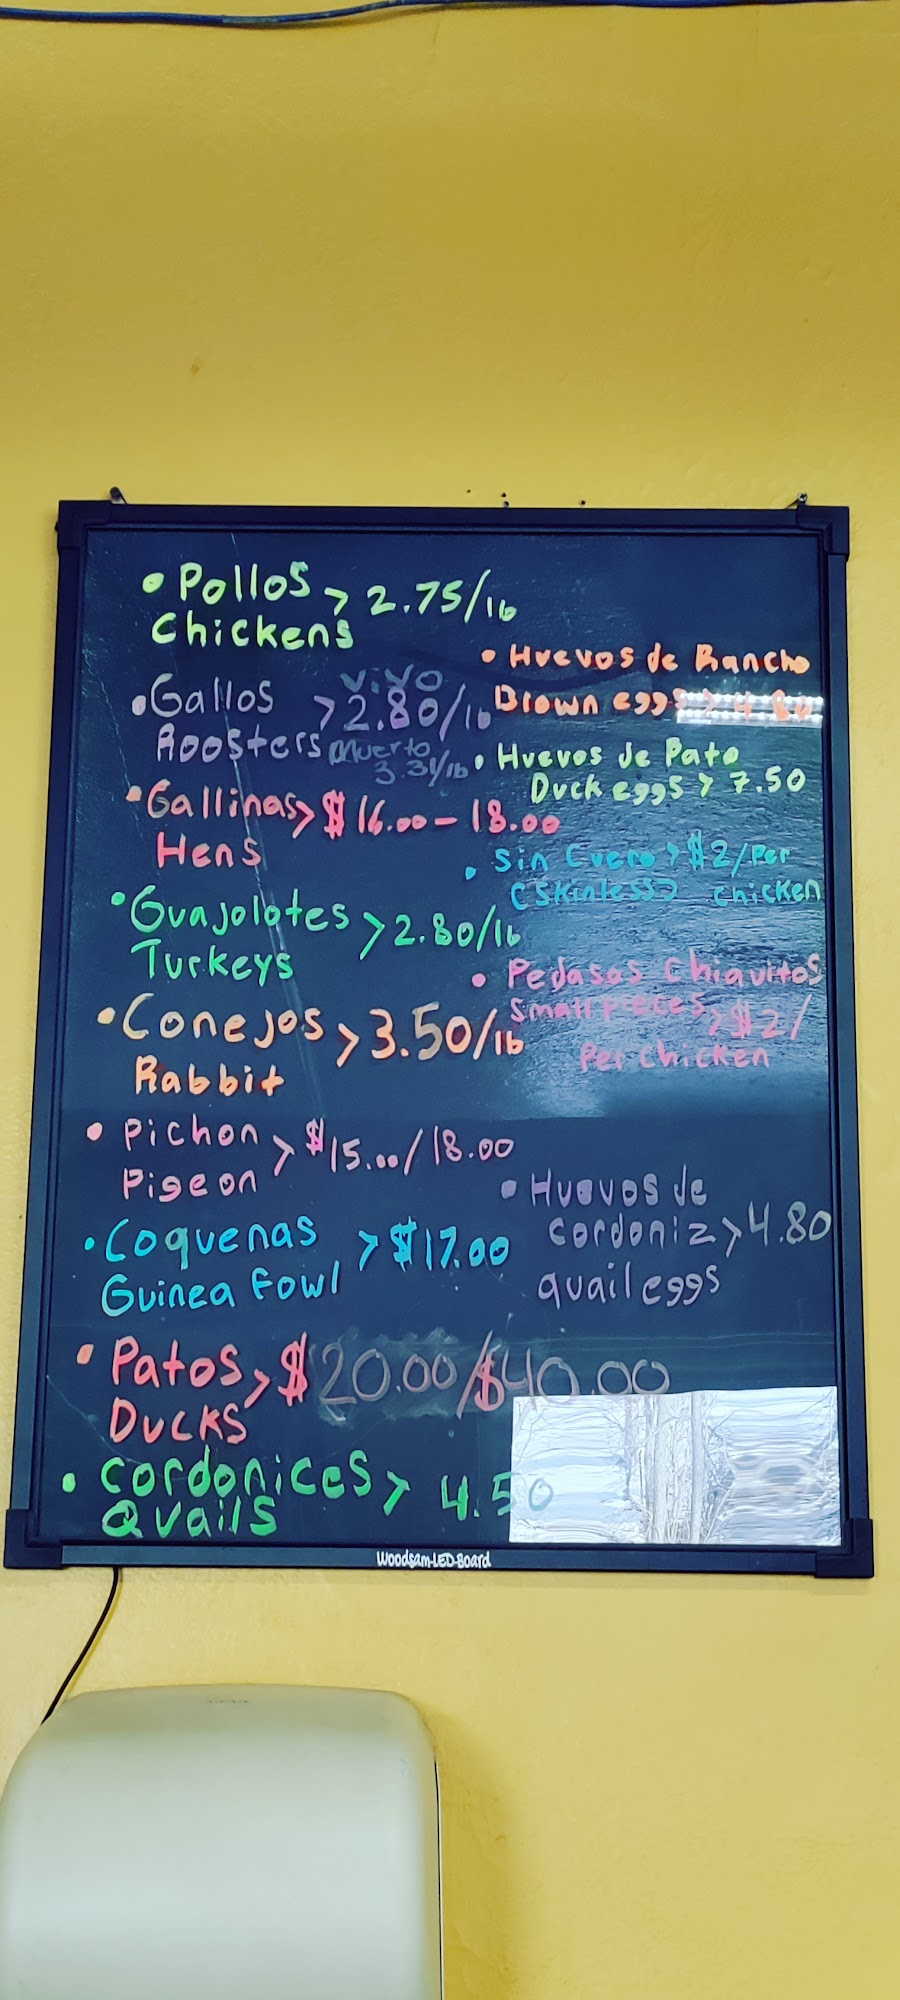 • Pollos > 2.75/lb
Chickens
• Gallos > vivo 2.80/lb
Roosters Muerto 3.31/lb
• Gallinas > $16.00 - 18.00
Hens
• Guajolotes > 2.80/lb
Turkeys
• Conejos > 3.50/lb
Rabbit
• Pichon > $15.00/18.00
Pigeon
• Coquenas > $17.00
Guinea Fowl
• Patos > $20.00/$40.00
Ducks
• Cordonices > 4.50
Quails
• Huevos de Rancho
Brown eggs > 4.80
• Huevos de Pato
Duck eggs > 7.50
• Sin Cuero > $2/Per
(Skinless) Chicken
• Pedasos Chiquitos
Small pieces > $2/
Per Chicken
• Huevos de
cordoniz > 4.80
quail eggs
Woodsam-LED-Board